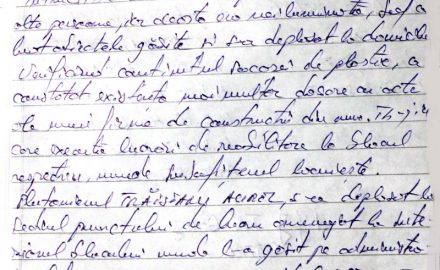 alte persoane, iar acesta era mai luminată, și a
luat obiectele găsite și s-a deplasat la domiciliu
Verificând conținutul sacosei de plastic, a
constatat existența mai multor dosare cu acte
ale unei firme de construcții din mun. Tg-Jiu
care executa lucrări de reabilitare la blocul
respectiv, unde susținitenul locuiește.
Plutonierul TRĂISTARU AUREL, s-a deplasat la
sediul punctului de lucru amenajat la inte-
riorul blocului unde l-a găsit pe administra-